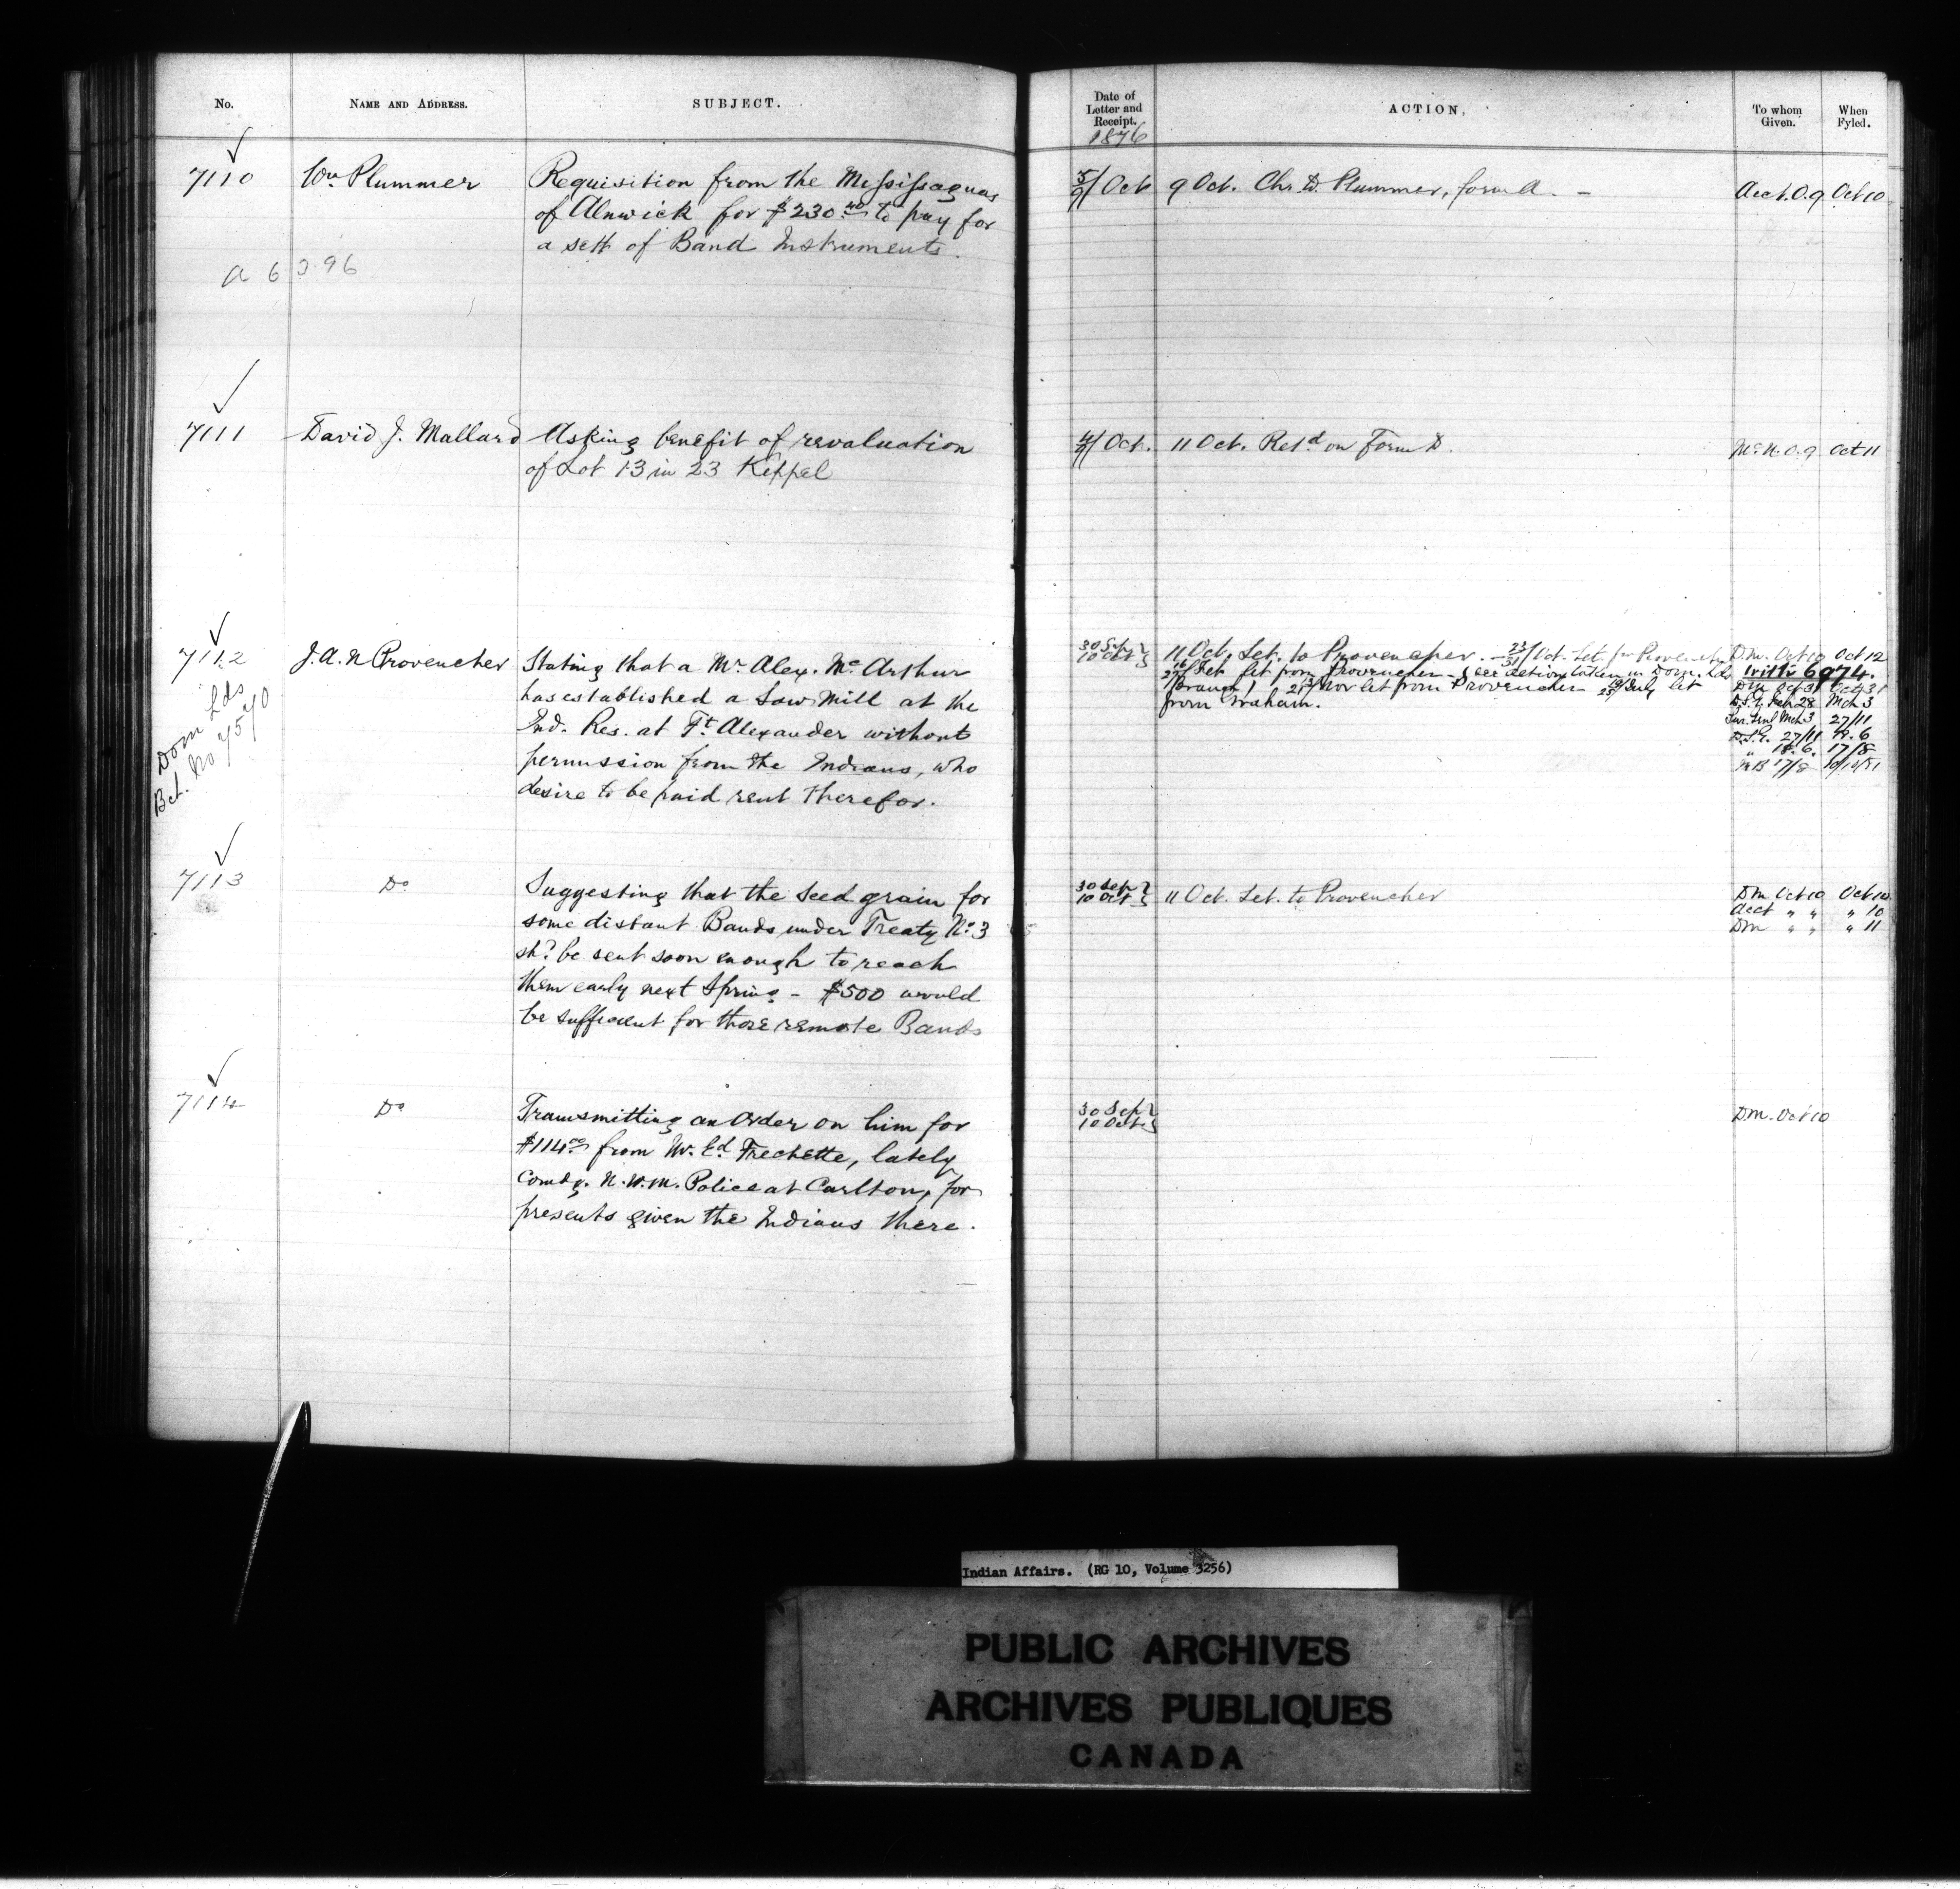 No.
NAME AND ADDRESS.
SUBJECT.
7110
Wm Plummer
Requisition from the Mississaguas
of Alnwick for $230.40 to pay for
a sett of Band Instruments.
A 6396
7111
David J. Mallard
Asking benefit of revaluation
of Lot 13 in 23 Keppel
7112
Dom Lds
Bch. No 7570
J.A.N Provencher
Stating that a Mr Alex. McArthur
has established a Saw Mill at the
Ind. Res. at Ft Alexander without
permission from the Indians, who
desire to be paid rent therefor.
7113
Do
Suggesting that the seed grain for
some distant Bands under Treaty No 3
shd be sent soon enough to reach
them early next Spring - $500 would
be sufficient for those remote Bands
7114
Do
Transmitting an Order on him for
$114.00 from Mr. Ed Frechette, lately
Comdg. N.W.M. Police at Carlton, for
presents given the Indians there.
Date of
Letter and
Receipt.
1876
ACTION,
To whom
Given.
When
Fyled.
5/9 Oct
9 Oct. Chr. D. Plummer, form A. -
Acct. O.9
Oct 10
4/9 Oct.
11 Oct. Retd on Form D.
McN. O.9
Oct 11
30 Sep
10 Oct
11 Oct. Let. to Provencher. - 23/31 Oct. Let. fm Provencher
16/27 Feb Let from Provencher - (see action taken in Dom. Lds
Branch) 13/21 Nov let from Provencher 19/25 July let
from Graham.
D.m. Oct 10 Oct 12
With 6974.
Dm Oct 31 Oct 31
D.S.G. Feb 28 Mch 3
Sur. Genl Mch 3 27/11
D.S.G. 27/11 18.6
" 18.6. 17/8
17/8 10/10/81
30 Sep
10 Oct
11 Oct. Let. to Provencher
Dm Oct 10 Oct 10
Acct " " " 10
Dm " " " 11
30 Sep
10 Oct
Dm. Oct 10
Indian Affairs. (RG 10, Volume 3256)
PUBLIC ARCHIVES
ARCHIVES PUBLIQUES
CANADA